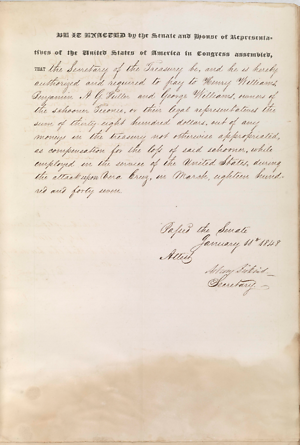 BE IT ENACTED by the Senate and House of Representa-
tives of the United States of America in Congress assembled,
THAT the Secretary of the Treasury be, and he is hereby
authorized and required to pay to Henry Williams,
Benjamin A. G. Fuller and George Williams, owners of
the schooner, or their legal representatives the
sum of thirty eight hundred dollars, out of any
moneys in the treasury not otherwise appropriated,
as compensation for the loss of said schooner, while
employed in the service of the United States, during
the attack upon Vera Cruz, in March, eighteen hund-
red and forty seven
Passed the Senate
January 11th 1849
Attest
Secretary.